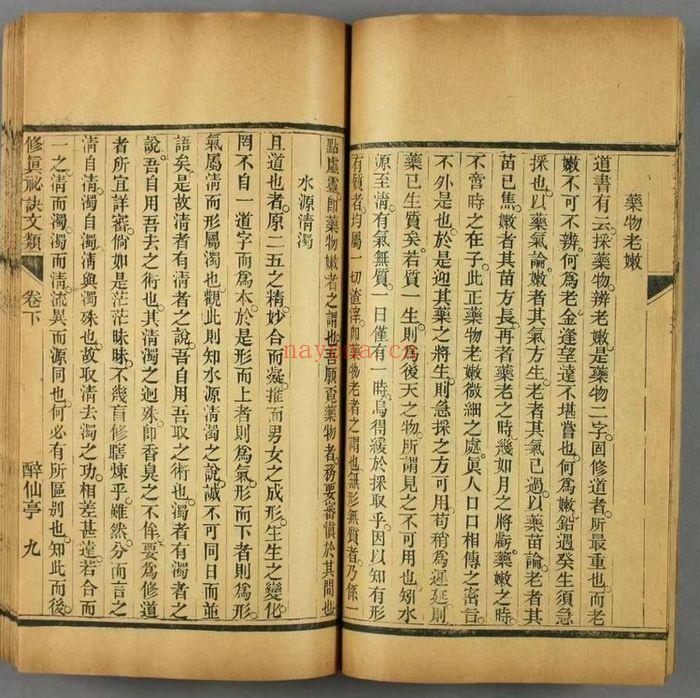 藥物老嫩
道書有云採藥物辨老嫩是藥物二字固修道者所最重也而老
嫩不可不辨何爲老金逢望遠不堪嘗也何爲嫩鉛遇癸生須急
採也以藥氣論嫩者其氣方生老者其氣已過以藥苗論老者其
苗已焦嫩者其苗方長再者藥老之時幾如月之將虧藥嫩之時
不啻時之在子此正藥物老嫩微細之處眞人口口相傳之密言
不外是也於是迎其藥之將生則急採之方可用苟稍爲遲延則
藥已生質矣若質一生則爲後天之物所謂見之不可用也矧水
源至清有氣無質一日僅有一時烏得緩於採取乎因以知有形
有質者均屬一切渣滓卽藥物老者之謂也無形無質者乃係一
點虛靈卽藥物嫩者之謂也願覓藥物者務要審愼於其間也
水源清濁
且道也者原二五之精妙合而凝推而男女之成形生生之變化
罔不自一道字而爲本於是形而上者則爲氣形而下者則爲形
氣屬清而形屬濁也觀此則知水源清濁之說誠不可同日而並
語矣是故清者有清者之說吾自用吾取之術也濁者有濁者之
說吾自用吾去之術也其清濁之迥殊卽香臭之不侔要爲修道
者所宜詳審倘如是茫茫昧昧不幾盲修瞎煉乎雖然分而言之
清自清濁自濁清與濁殊也故取清去濁之功相差甚遠若合而
一之清而濁濁而清流異而源同也何必有所區別也知此而後
修眞祕訣文類
卷下
醉仙亭
九
nayona.cn